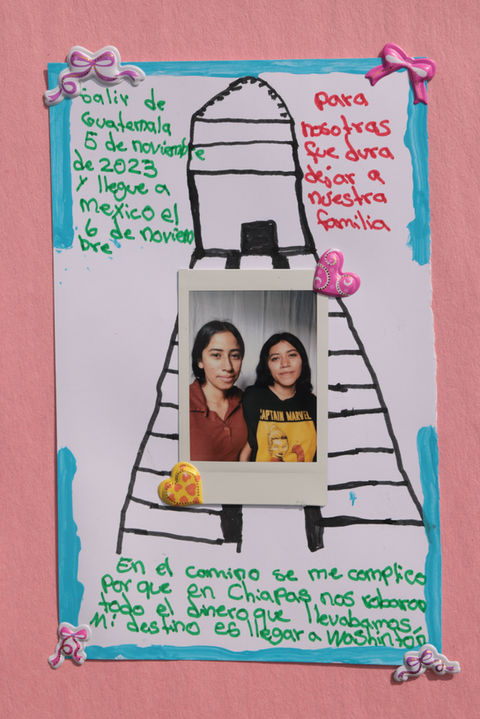 Salir de
Guatemala
5 de noviembre
de 2023
y llegue a
mexico el
6 de noviem
bre
para
nosotras
fue dura
dejar a
nuestra
familia
CAPTAIN MARVEL
En el camino se me complico
por que en Chiapas nos robaron
todo el dinero que llevabamos
Mi destino es llegar a Washintón